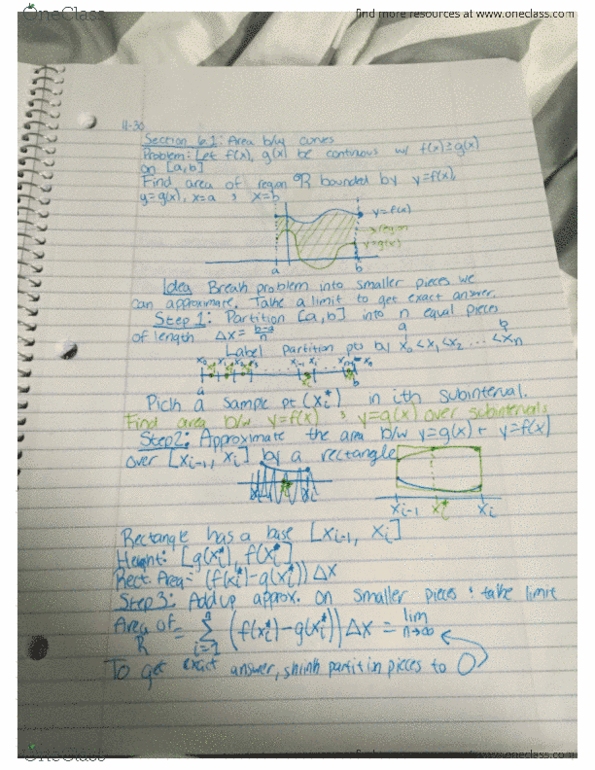 OneClass
find more resources at www.oneclass.com
11-30
Section 6.1: Area b/w curves
Problem: Let f(x), g(x) be continous w/ f(x)≥g(x)
on [a,b]
Find area of region R bounded by y=f(x),
y=g(x), x=a & x=b
y=f(x)
region
y=g(x)
a b
Idea Break problem into smaller pieces we
can approximate. Take a limit to get exact answer.
Step 1: Partition [a,b] into n equal pieces
of length Δx = b-a/n
a b
Label partition pts by x₀<x₁<x₂ ... <xₙ
x₀ x₁ x₂ x₃ xᵢ₋₁ xᵢ xₙ₋₁ xₙ
a b
Pick a sample pt (xᵢ*) in ith subinterval.
Find area b/w y=f(x) & y=g(x) over subintervals
Step 2: Approximate the area b/w y=g(x) + y=f(x)
over [xᵢ₋₁, xᵢ] by a rectangle
xᵢ₋₁ xᵢ* xᵢ
Rectangle has a base [xᵢ₋₁, xᵢ]
Height: [g(xᵢ*), f(xᵢ*]
Rect. Area= (f(xᵢ*)-g(xᵢ*))Δx
Step 3: Add up approx. on smaller pieces & take limit
Area of R = Σ i=1 n (f(xᵢ*)-g(xᵢ*))Δx = lim n→∞
To get exact answer, shrink partition pieces to 0
OneClass
find more resources at www.oneclass.com